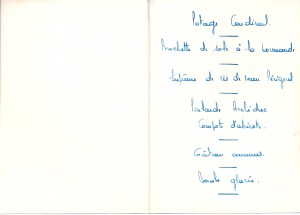 Potage Cardinal
Brochette de sole à la normande
Suprême de ris de veau Périgord
Poularde Archiduc
Compote d'abricots.
Gâteau ananas.
Bombe glacée.